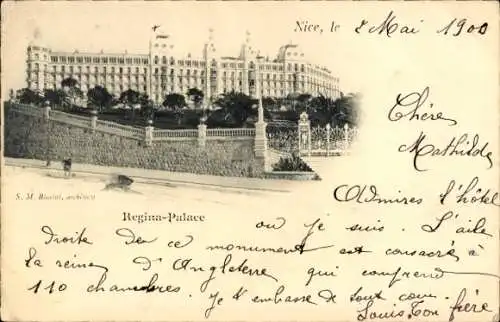 Nice, le 2 Mai 1900
Chère
Mathilde,
Admirez l'hôtel
S. M. Biasini, architect
Regina-Palace
où je suis. L'aile
Droite de ce monument est consacré à
la reine d'Angleterre qui comprend
110 chambres. Je t'embrasse de tout cœur.
Louis Ton frère